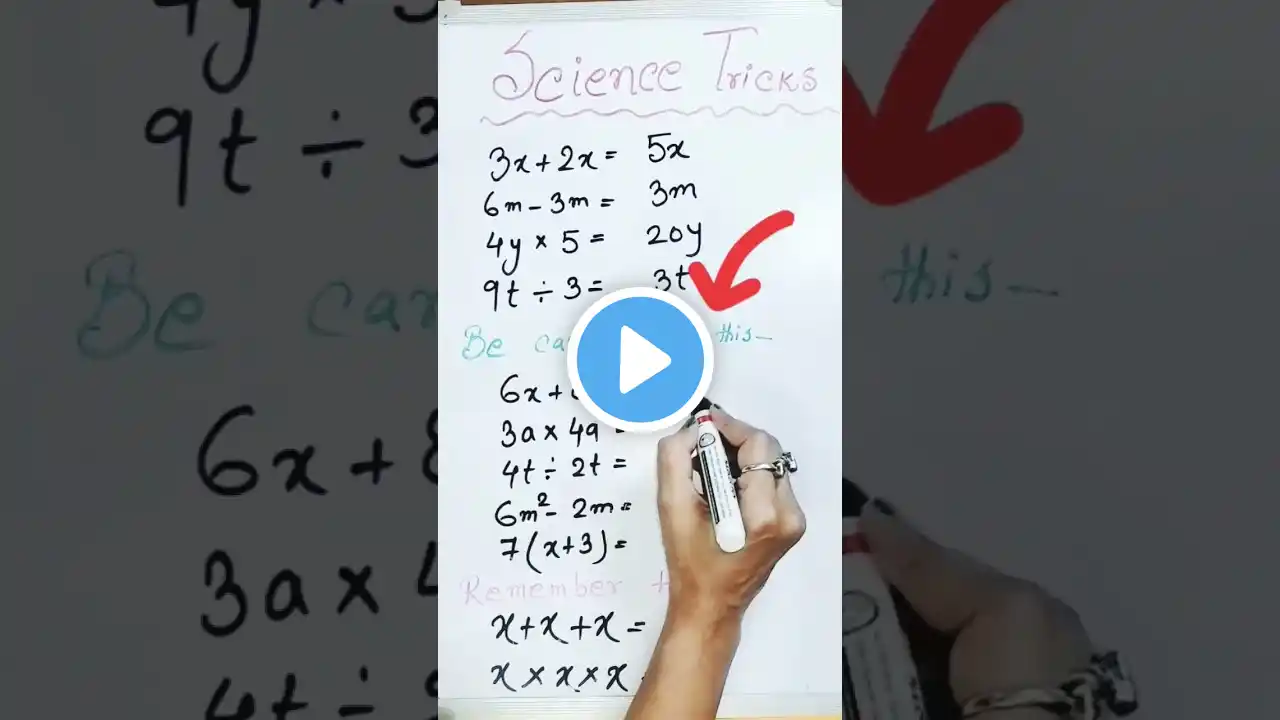 Science Tricks
3x + 2x = 5x
6m - 3m = 3m
4y × 5 = 20y
9t ÷ 3 = 3t
Be this-
6x +
3a × 4a =
4t ÷ 2t =
6m² - 2m =
7(x+3) =
Remember
x + x + x =
x × x × x